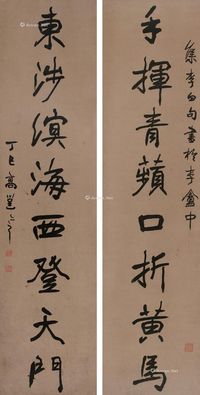 集李白句書於李盦中
手揮青蘋口折黃馬
東涉溟海西登天門
丁巳高邕之